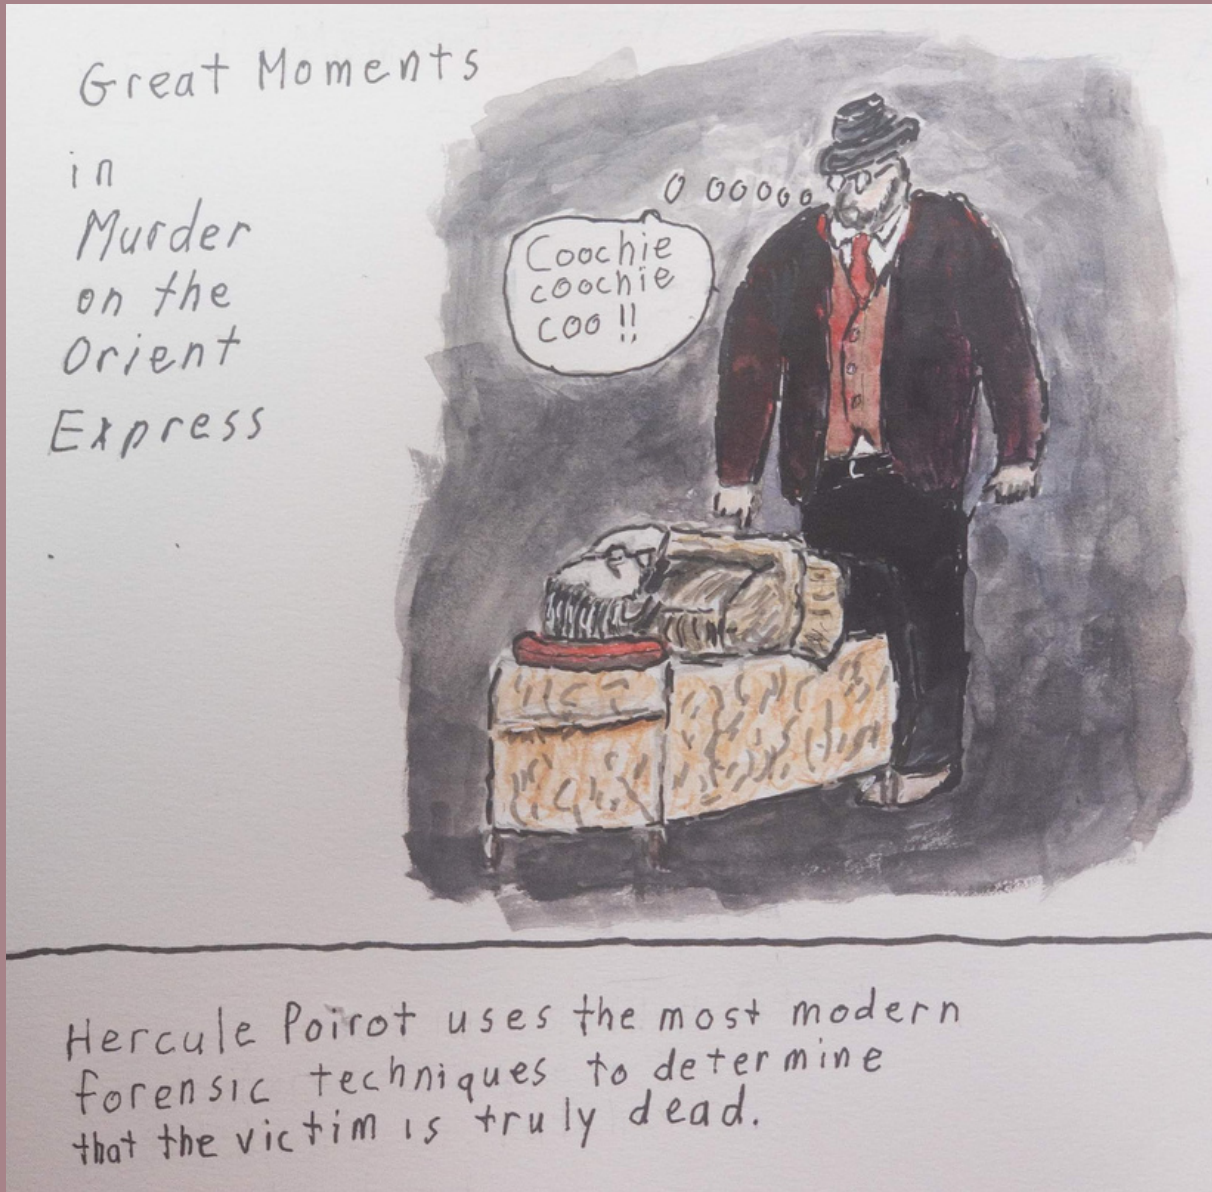 Great Moments
in
Murder
on the
Orient
Express
Coochie
coochie
coo !!
Hercule Poirot uses the most modern
forensic techniques to determine
that the victim is truly dead.